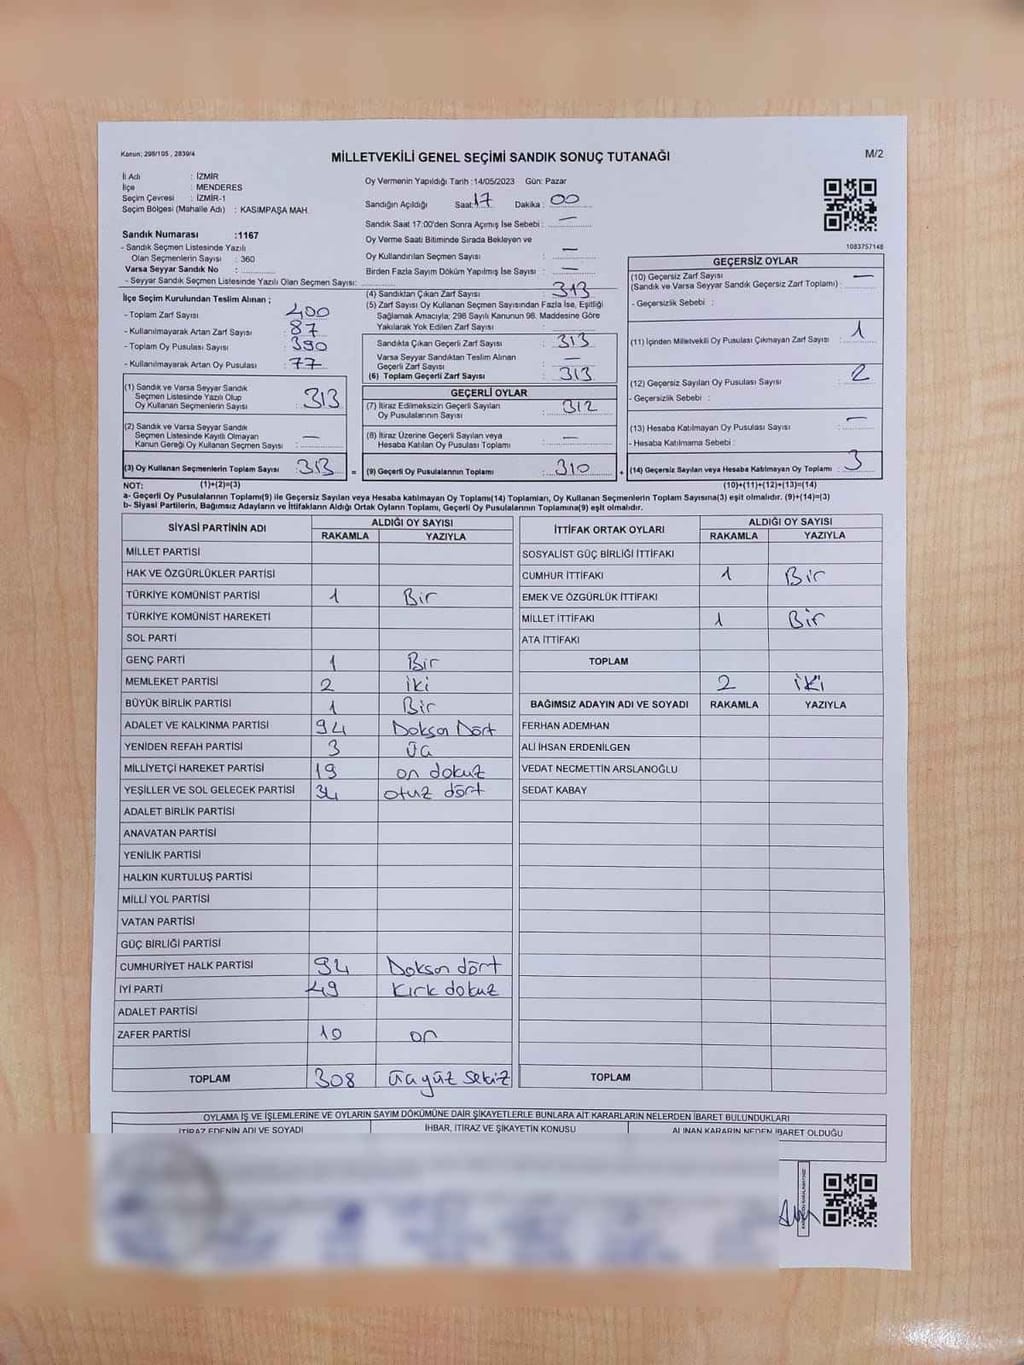 Kanun; 298/105 , 2839/4
MİLLETVEKİLİ GENEL SEÇİMİ SANDIK SONUÇ TUTANAĞI
M/2
İl Adı : İZMİR
İlçe : MENDERES
Seçim Çevresi : İZMİR-1
Seçim Bölgesi (Mahalle Adı) : KASIMPAŞA MAH.
Sandık Numarası :1167
- Sandık Seçmen Listesinde Yazılı
Olan Seçmenlerin Sayısı : 360
Varsa Seyyar Sandık No :
- Seyyar Sandık Seçmen Listesinde Yazılı Olan Seçmen Sayısı:
Oy Vermenin Yapıldığı Tarih :14/05/2023 Gün: Pazar
Sandığın Açıldığı Saat: 17 Dakika : 00
Sandık Saat 17:00'den Sonra Açılmış İse Sebebi : —
Oy Verme Saati Bitiminde Sırada Bekleyen ve
Oy Kullandırılan Seçmen Sayısı : —
Birden Fazla Sayım Döküm Yapılmış İse Sayısı : —
1083757148
İlçe Seçim Kurulundan Teslim Alınan ;
- Toplam Zarf Sayısı : 400
- Kullanılmayarak Artan Zarf Sayısı : 87
- Toplam Oy Pusulası Sayısı : 390
- Kullanılmayarak Artan Oy Pusulası : 77
(1) Sandık ve Varsa Seyyar Sandık
Seçmen Listesinde Yazılı Olup
Oy Kullanan Seçmenlerin Sayısı : 313
(2) Sandık ve Varsa Seyyar Sandık
Seçmen Listesinde Kayıtlı Olmayan
Kanun Gereği Oy Kullanan Seçmen Sayısı : —
(3) Oy Kullanan Seçmenlerin Toplam Sayısı : 313 =
(4) Sandıktan Çıkan Zarf Sayısı : 313
(5) Zarf Sayısı Oy Kullanan Seçmen Sayısından Fazla İse, Eşitliği
Sağlamak Amacıyla; 298 Sayılı Kanunun 98. Maddesine Göre
Yakılarak Yok Edilen Zarf Sayısı :
Sandıkta Çıkan Geçerli Zarf Sayısı : 313
Varsa Seyyar Sandıktan Teslim Alınan
Geçerli Zarf Sayısı : —
(6) Toplam Geçerli Zarf Sayısı : 313
GEÇERLİ OYLAR
(7) İtiraz Edilmeksizin Geçerli Sayılan
Oy Pusulalarının Sayısı : 312
(8) İtiraz Üzerine Geçerli Sayılan veya
Hesaba Katılan Oy Pusulası Toplamı : —
(9) Geçerli Oy Pusulalarının Toplamı : 310 +
GEÇERSİZ OYLAR
(10) Geçersiz Zarf Sayısı —
(Sandık ve Varsa Seyyar Sandık Geçersiz Zarf Toplamı) :
- Geçersizlik Sebebi :
(11) İçinden Milletvekili Oy Pusulası Çıkmayan Zarf Sayısı : 1
(12) Geçersiz Sayılan Oy Pusulası Sayısı : 2
- Geçersizlik Sebebi :
(13) Hesaba Katılmayan Oy Pusulası Sayısı : —
- Hesaba Katılmama Sebebi :
(14) Geçersiz Sayılan veya Hesaba Katılmayan Oy Toplamı : 3
NOT: (1)+(2)=(3) (10)+(11)+(12)+(13)=(14)
a- Geçerli Oy Pusulalarının Toplamı(9) ile Geçersiz Sayılan veya Hesaba katılmayan Oy Toplamı(14) Toplamları, Oy Kullanan Seçmenlerin Toplam Sayısına(3) eşit olmalıdır. (9)+(14)=(3)
b- Siyasi Partilerin, Bağımsız Adayların ve İttifakların Aldığı Ortak Oyların Toplamı, Geçerli Oy Pusulalarının Toplamına(9) eşit olmalıdır.
SİYASİ PARTİNİN ADI ALDIĞI OY SAYISI
RAKAMLA YAZIYLA
MİLLET PARTİSİ
HAK VE ÖZGÜRLÜKLER PARTİSİ
TÜRKİYE KOMÜNİST PARTİSİ 1 Bir
TÜRKİYE KOMÜNİST HAREKETİ
SOL PARTİ
GENÇ PARTİ 1 Bir
MEMLEKET PARTİSİ 2 iki
BÜYÜK BİRLİK PARTİSİ 1 Bir
ADALET VE KALKINMA PARTİSİ 94 Doksan Dört
YENİDEN REFAH PARTİSİ 3 üç
MİLLİYETÇİ HAREKET PARTİSİ 19 on dokuz
YEŞİLLER VE SOL GELECEK PARTİSİ 34 otuz dört
ADALET BİRLİK PARTİSİ
ANAVATAN PARTİSİ
YENİLİK PARTİSİ
HALKIN KURTULUŞ PARTİSİ
MİLLİ YOL PARTİSİ
VATAN PARTİSİ
GÜÇ BİRLİĞİ PARTİSİ
CUMHURİYET HALK PARTİSİ 94 Doksan dört
İYİ PARTİ 49 Kırk dokuz
ADALET PARTİSİ
ZAFER PARTİSİ 10 on
TOPLAM 308 üçyüz sekiz
İTTİFAK ORTAK OYLARI ALDIĞI OY SAYISI
RAKAMLA YAZIYLA
SOSYALİST GÜÇ BİRLİĞİ İTTİFAKI
CUMHUR İTTİFAKI 1 Bir
EMEK VE ÖZGÜRLÜK İTTİFAKI
MİLLET İTTİFAKI 1 Bir
ATA İTTİFAKI
TOPLAM
2 iki
BAĞIMSIZ ADAYIN ADI VE SOYADI RAKAMLA YAZIYLA
FERHAN ADEMHAN
ALİ İHSAN ERDENİLGEN
VEDAT NECMETTİN ARSLANOĞLU
SEDAT KABAY
TOPLAM
OYLAMA İŞ VE İŞLEMLERİNE VE OYLARIN SAYIM DÖKÜMÜNE DAİR ŞİKAYETLERLE BUNLARA AİT KARARLARIN NELERDEN İBARET BULUNDUKLARI
İTİRAZ EDENİN ADI VE SOYADI İHBAR, İTİRAZ VE ŞİKAYETİN KONUSU ALINAN KARARIN NEDEN İBARET OLDUĞU